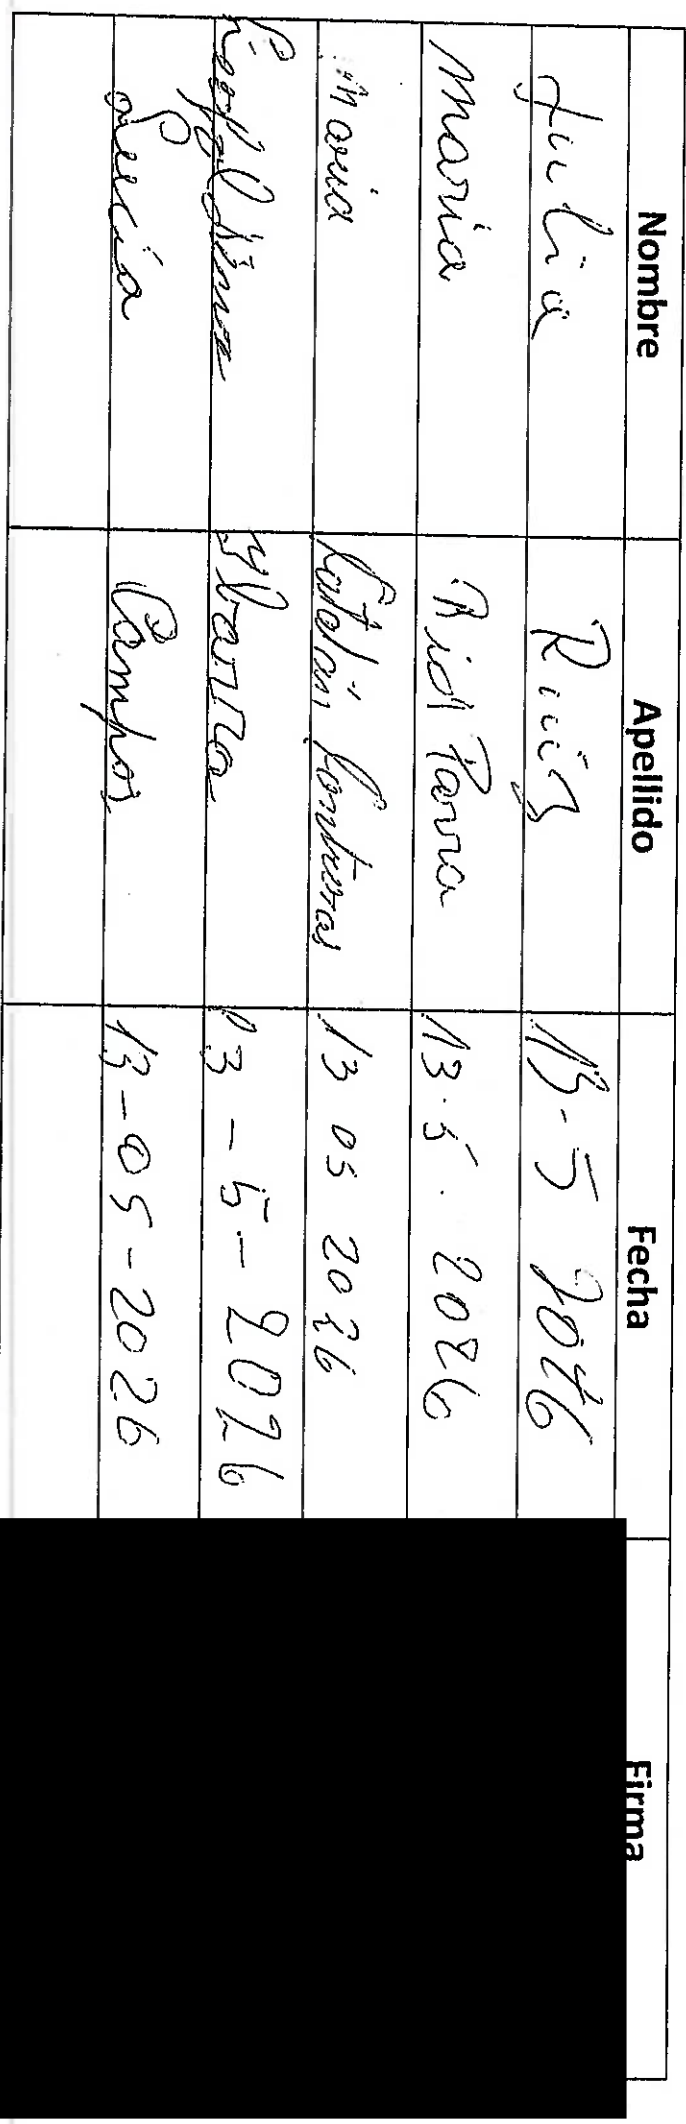 Nombre Apellido Fecha Firma
Julia Ruiz 13-5 2026
Maria Rid Parra 13.5. 2026
Maria Catalán Contreras 13 05 2026
13-5-2026
Lucía Campos 13-05-2026